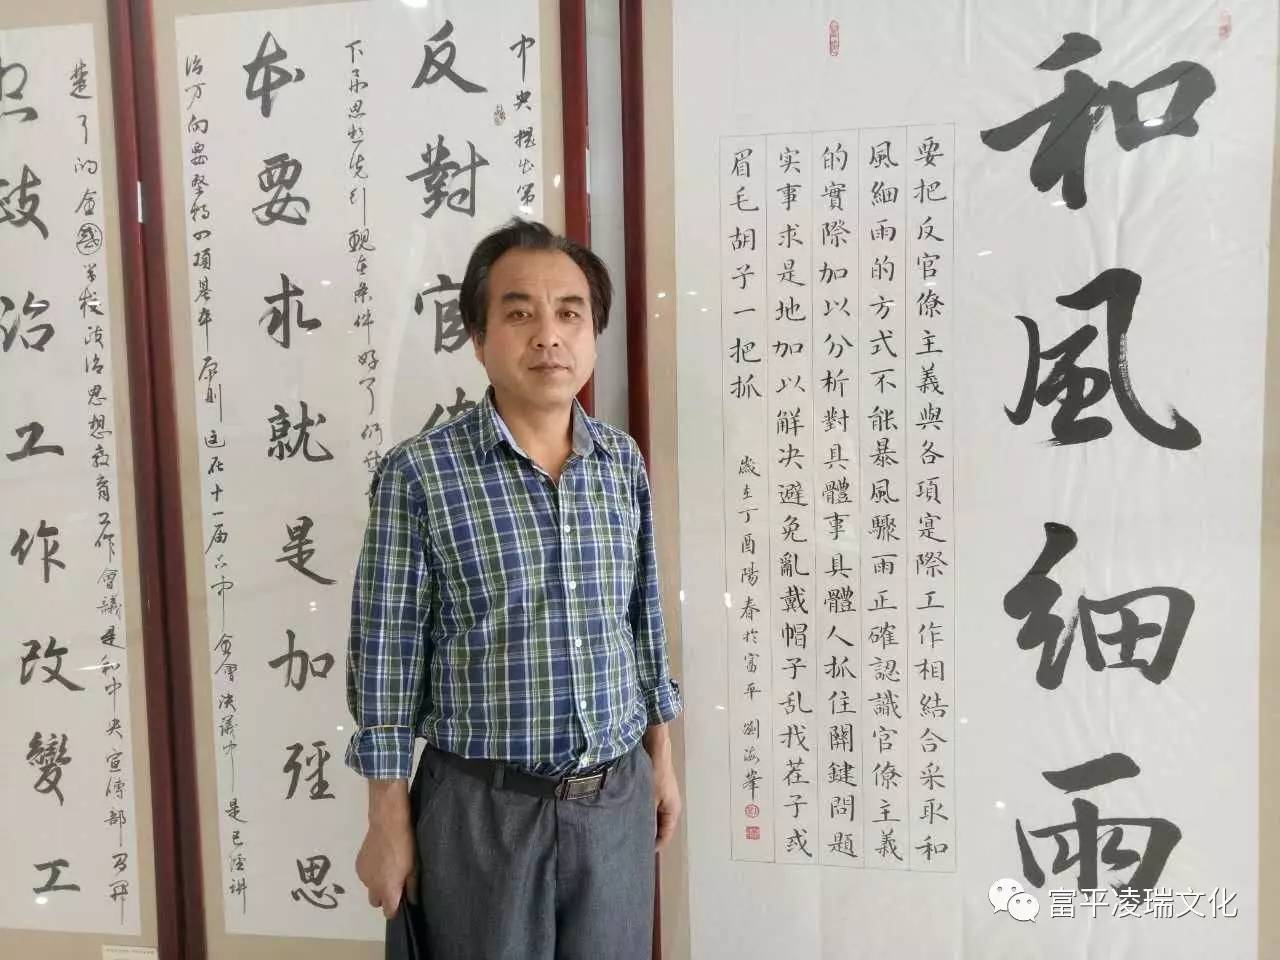 和風細雨
要把反官僚主義與各項寔際工作相結合采取和
風細雨的方式不能暴風驟雨正確認識官僚主義
的實際加以分析對具體事具體人抓住關鍵問題
实事求是地加以解决避免亂戴帽子乱找茬子或
眉毛胡子一把抓
歲在丁酉陽春於富平劉海峯
中央提出第
反對官僚
本要求就是加强思
治方向要堅持四項基本原则这在十一届六中全會决議中是已經讲
楚了的全國学校政治思想教育工作會議是和中央宣傳部召開
政治工作改變工
富平凌瑞文化